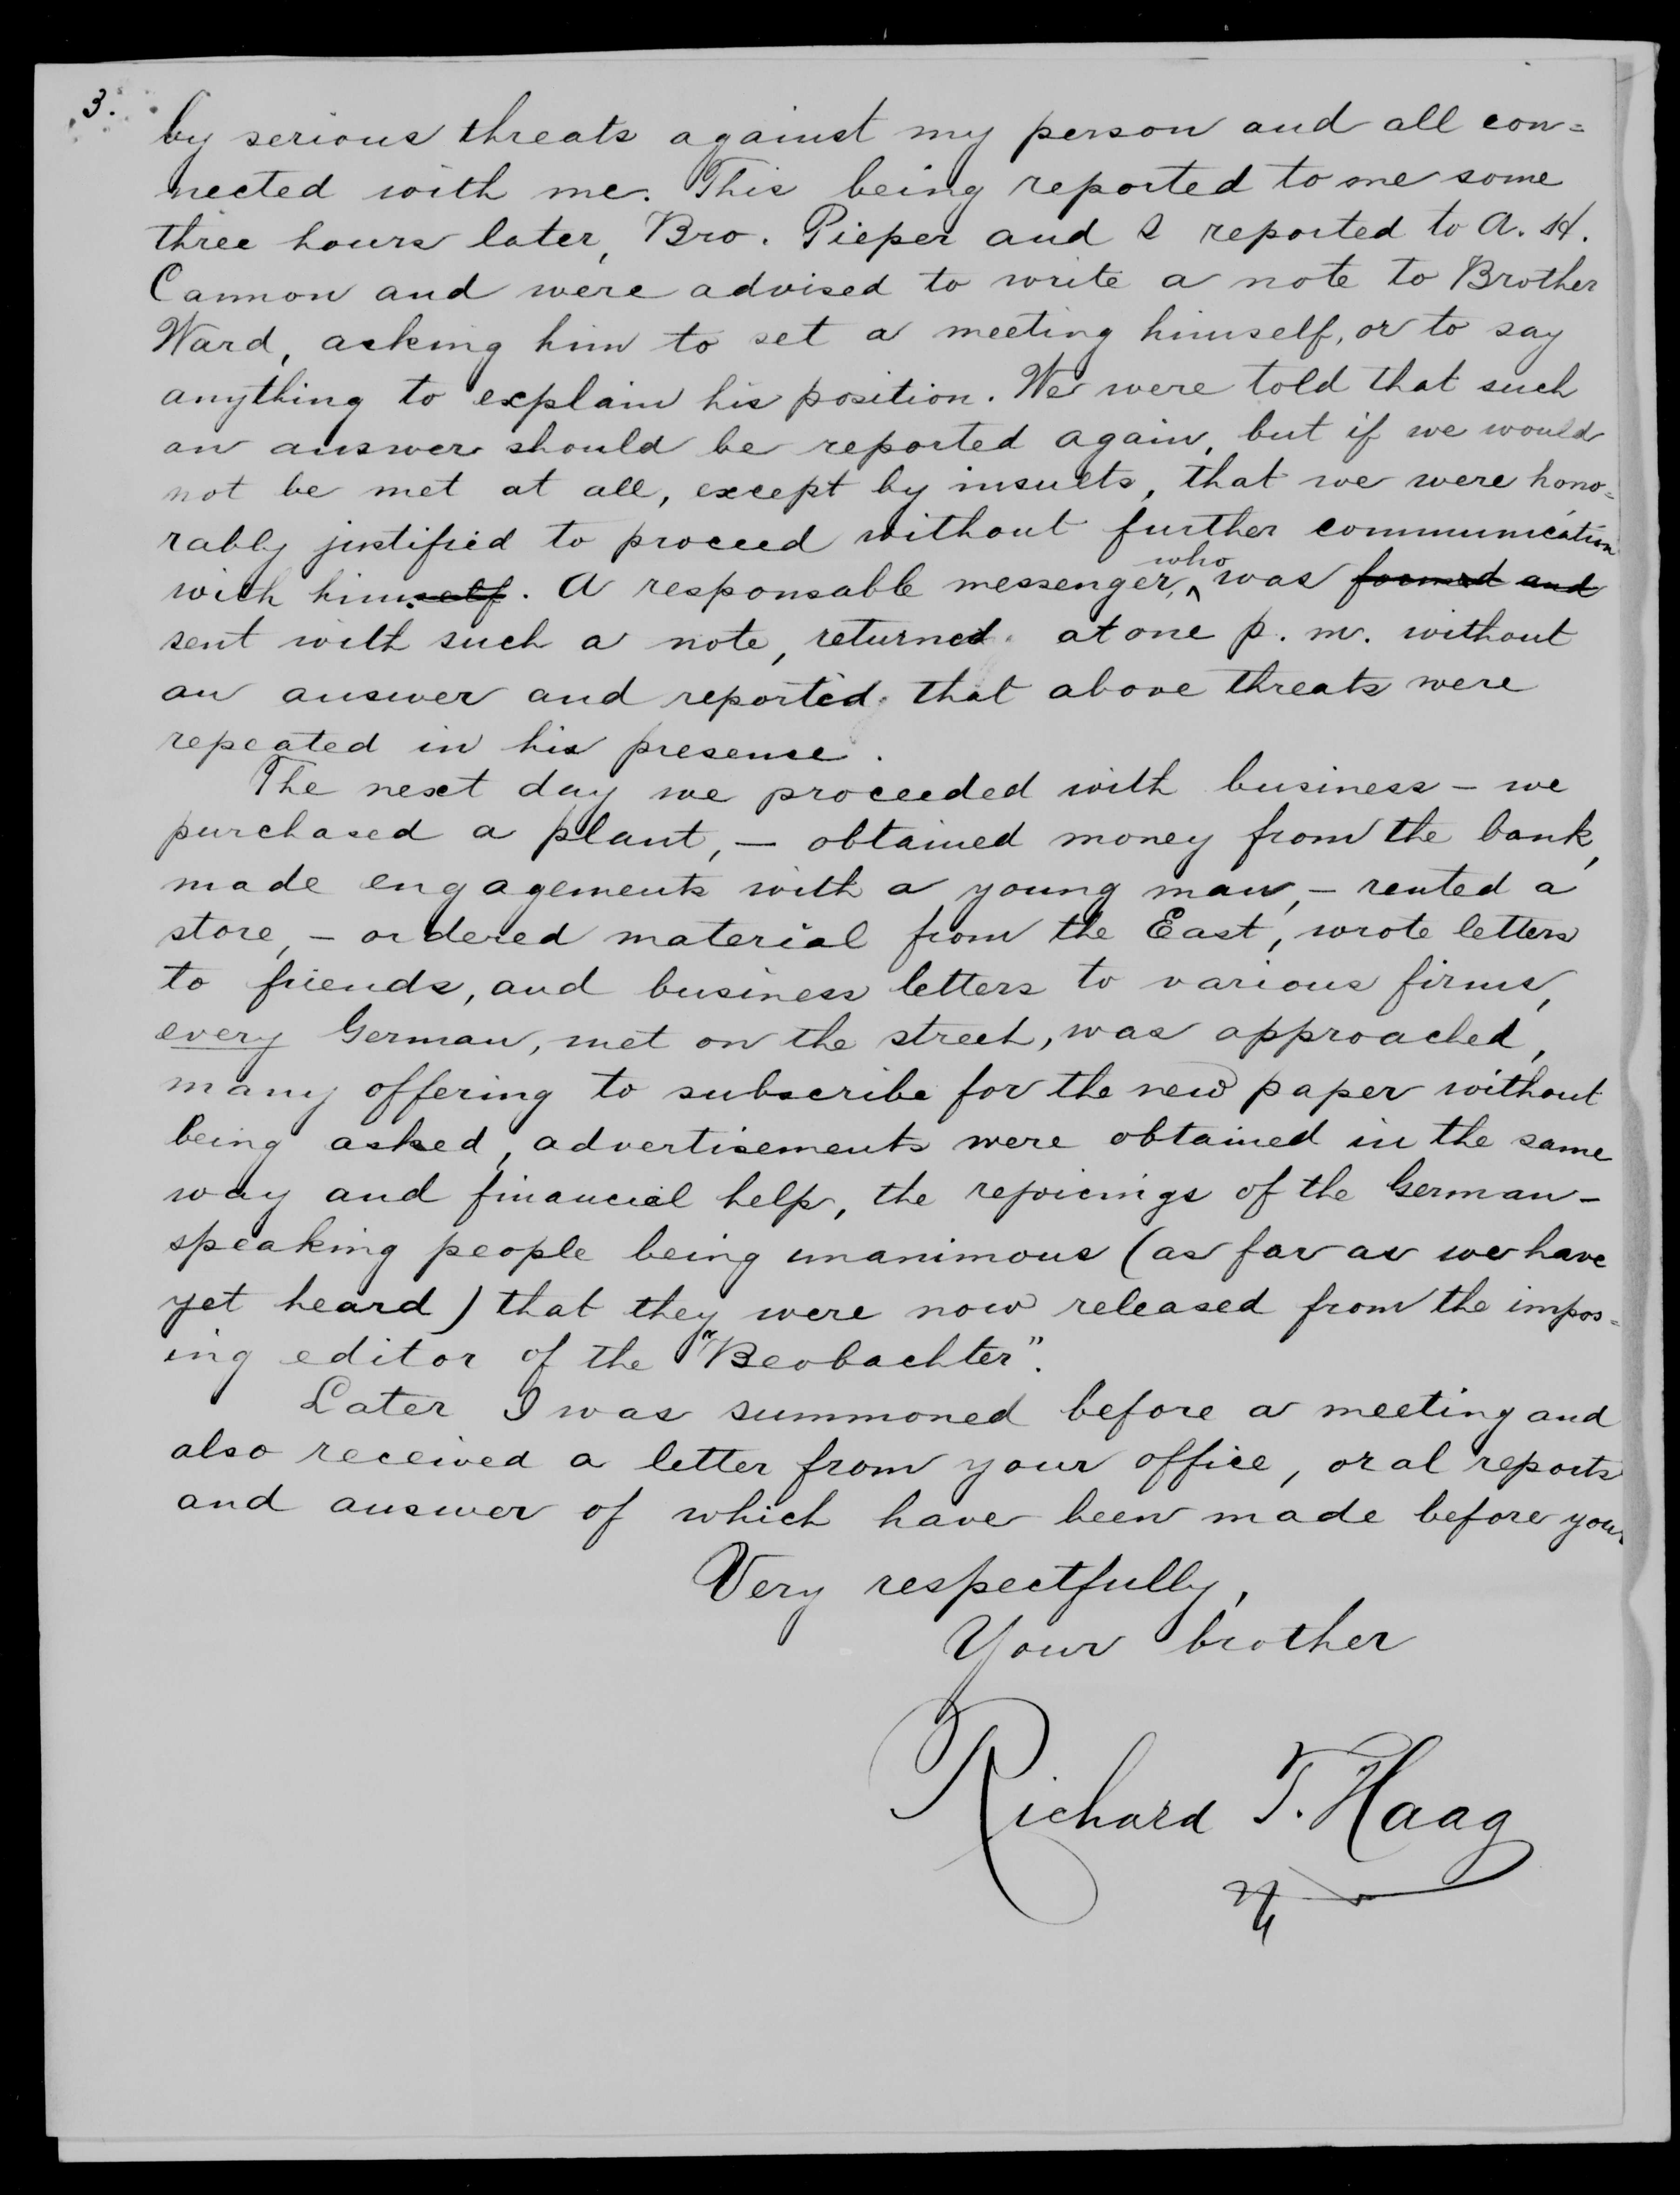 3.
by serious threats against my person and all con=
nected with me. This being reported to me some
three hours later, Bro. Pieper and I reported to A. H.
Cannon and were advised to write a note to Brother
Ward, asking him to set a meeting himself, or to say
anything to explain his position. We were told that such
an answer should be reported again, but if we would
not be met at all, except by insults, that we were hono=
rably justified to proceed without further communication
with himself. A responsable messenger, who was formed and
sent with such a note, returned at one p. m. without
an answer and reported that above threats were
repeated in his presense.
The next day we proceeded with business - we
purchased a plant, — obtained money from the bank,
made engagements with a young man, - rented a
store, - ordered material from the East, wrote letters
to friends, and business letters to various firms,
every German, met on the street, was approached,
many offering to subscribe for the new paper without
being asked, advertisements were obtained in the same
way and financial help, the rejoicings of the German-
speaking people being unanimous (as far as we have
yet heard) that they were now released from the impos=
ing editor of the "Beobachter".
Later I was summoned before a meeting and
also received a letter from your office, oral reports
and answer of which have been made before you.
Very respectfully,
Your brother
Richard T. Haag